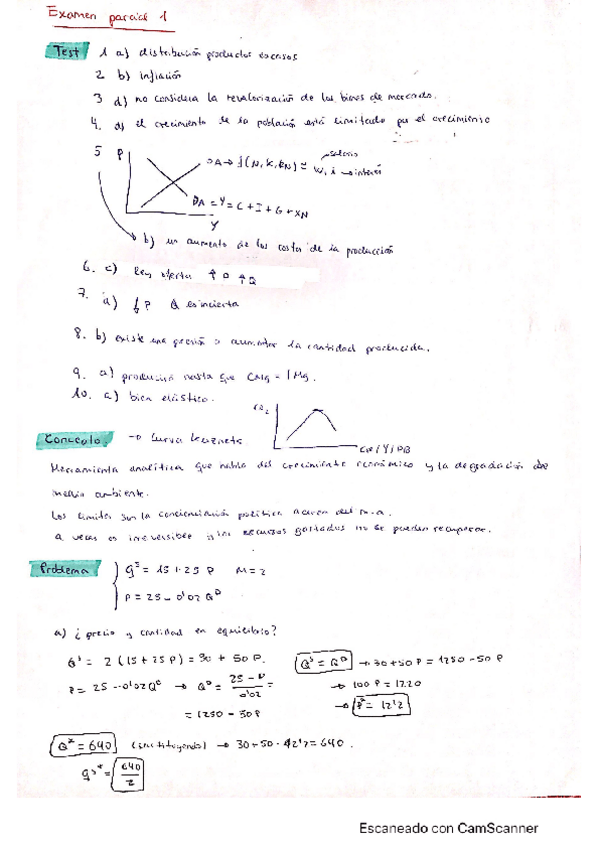 Examen parcial 1
Test 1 a) distribución productos escasos
2 b) Inflación
3 d) no considera la revalorización de los bienes de mercado.
4. d) el crecimiento de la población está limitado por el crecimiento
5 P
OA → f(N, K, RN) = W, i → interés
salario
DA = Y = C + I + G + XN
Y
b) un aumento de los costos de la producción
6. c) ley oferta ↑P ↑Q
7. a) P Q es incierta
8. b) existe una presión a aumentar la cantidad producida.
9. a) producirá hasta que CMg = IMg.
10. a) bien elástico.
Concepto → Curva Kuznets
Herramienta analítica que habla del crecimiento económico y la degradación de
medio ambiente.
Los límites son la concienciación política acerca del m.a.
a veces es irreversible los recursos gastados no se pueden recuperar.
Problema
P = 25 - 0'02 Q^D
a) ¿precio y cantidad en equilibrio?
Q^S = 2 (15 + 25 P) = 30 + 50 P.
Q^S = Q^D → 30 + 50 P = 1250 - 50 P
P = 25 - 0'02 Q^D → Q^D = (25 - P) / 0'02 =
→ 100 P = 1220
= 1250 - 50P
→ P* = 12'2
Q* = 640 (sustituyendo) → 30 + 50 · 12'2 = 640.
q^S* = 640 / 2
Escaneado con CamScanner